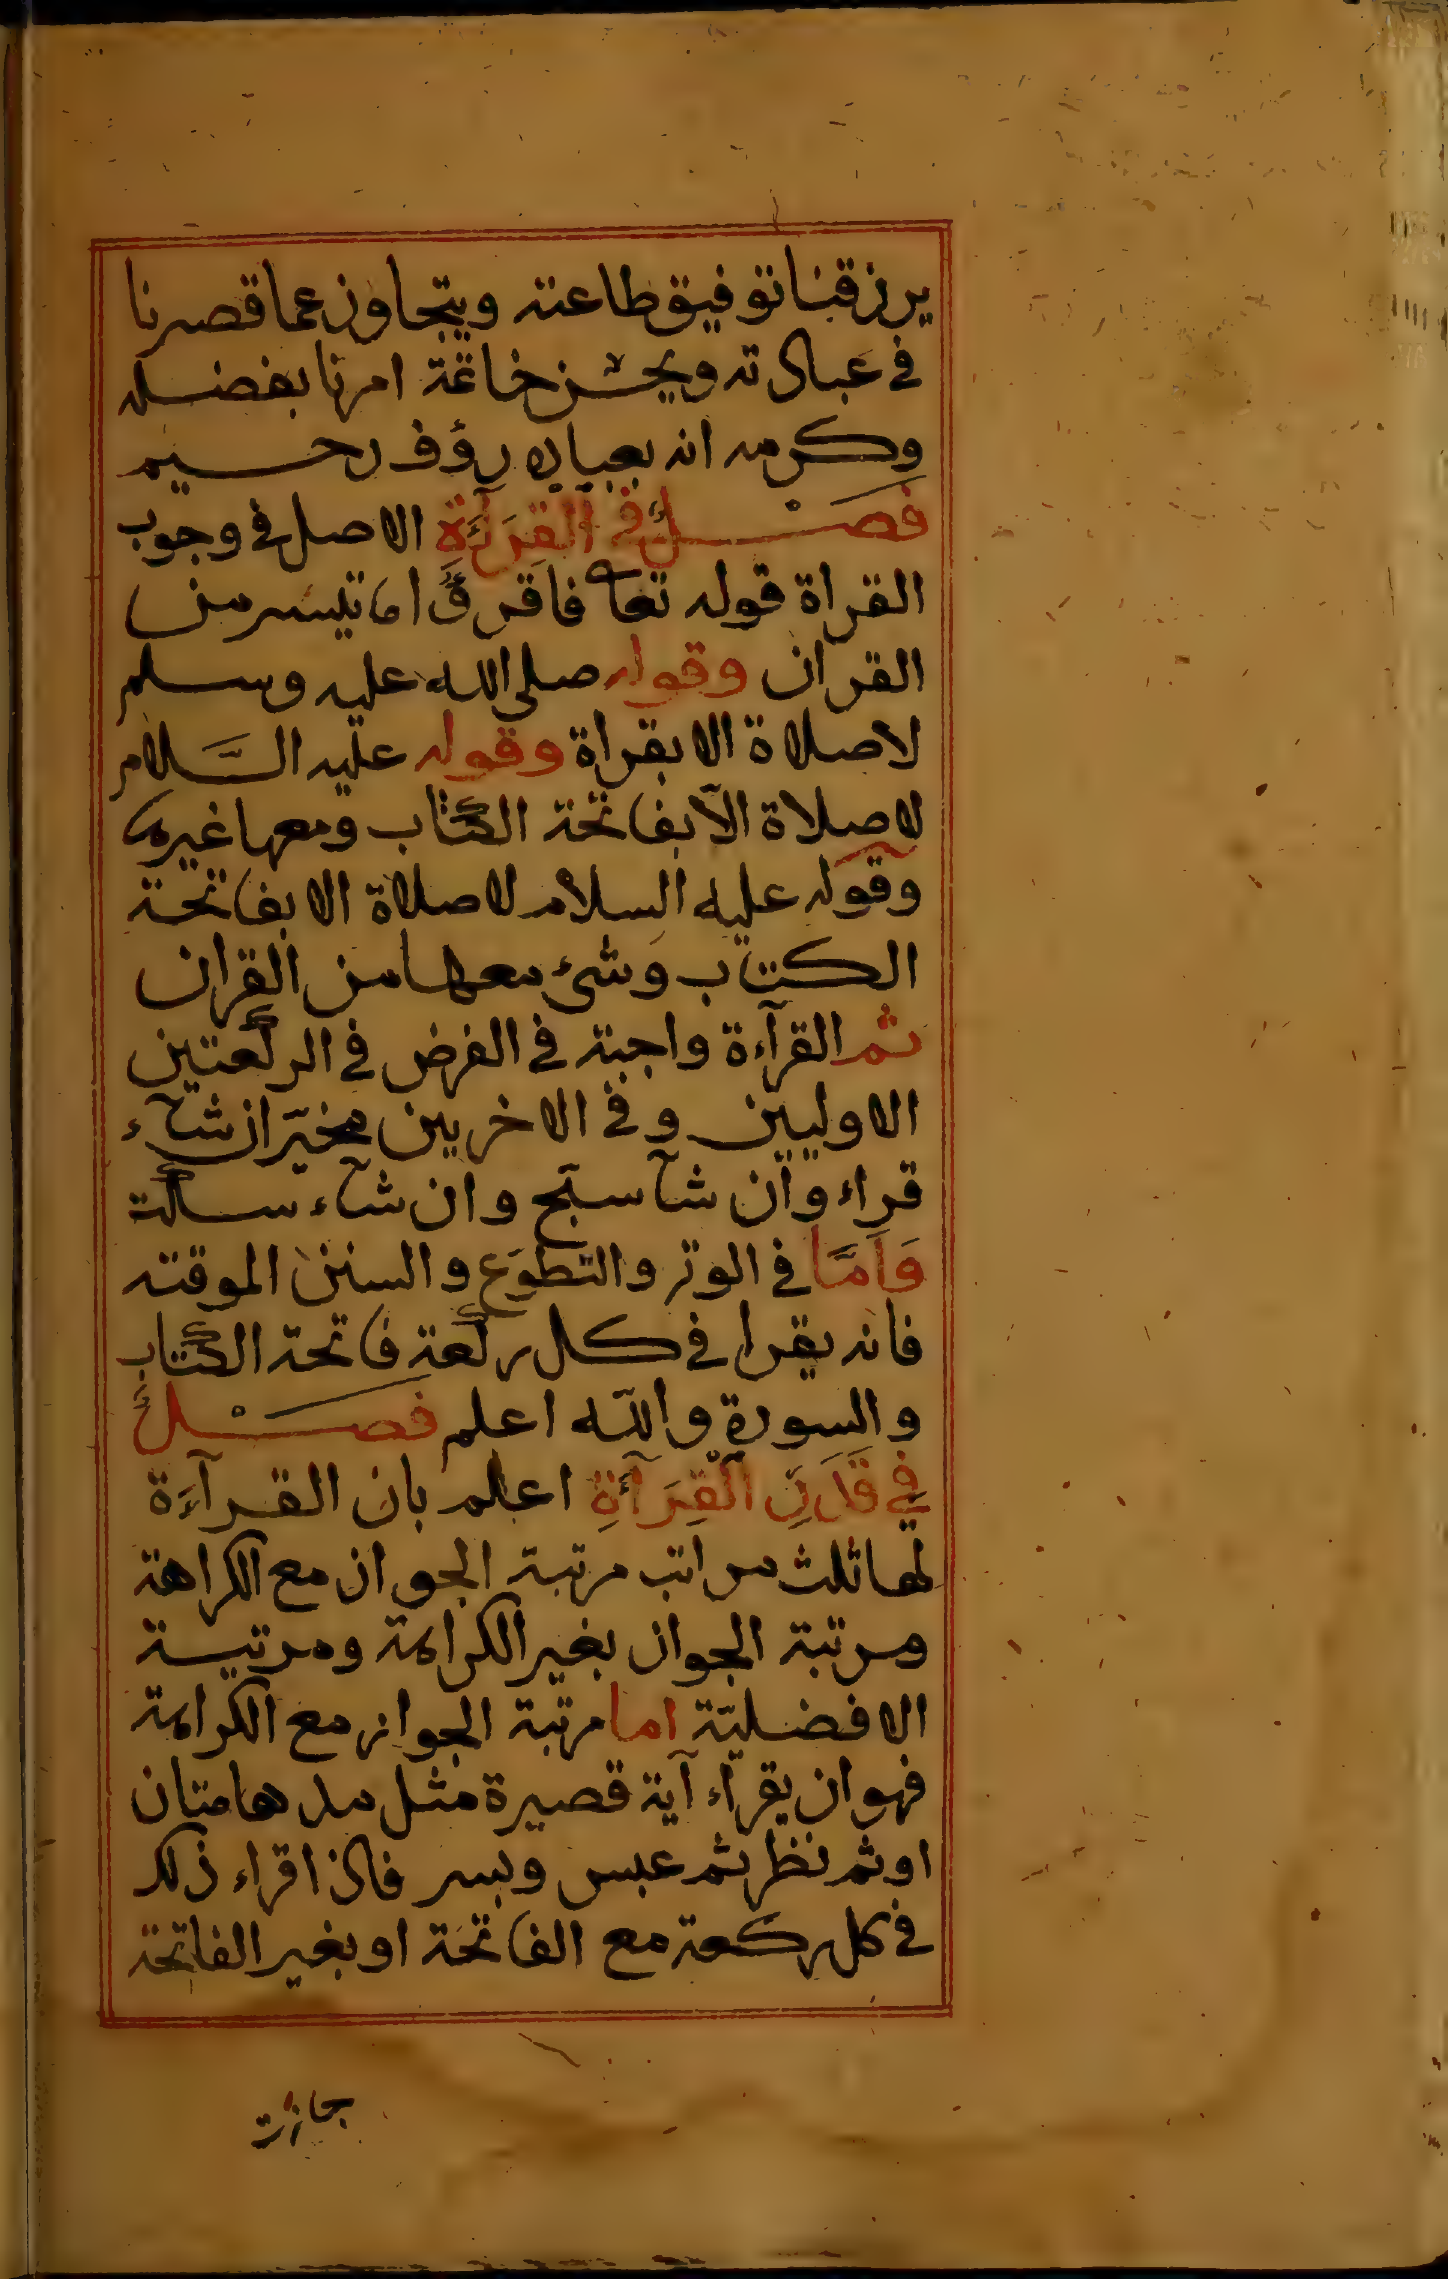 يرزقنا توفيق طاعته ويتجاوز عما قصرنا
في عبادته ويحسن خاتمة امرنا بفضله
وكرمه انه بعباده رؤف رحيم
فصل في القرآءة الاصل في وجوب
القراة قوله تعا فاقرؤا ما تيسر من
القران وقوله صلى الله عليه وسلم
لا صلاة الا بقراة وقوله عليه السلام
لا صلاة الا بفاتحة الكتاب ومعها غيرها
وقوله عليه السلام لا صلاة الا بفاتحة
الكتاب وشئ معها من القران
ثم القرآءة واجبة في الفرض في الركعتين
الاوليين وفي الاخريين مخيّر ان شآء
قراء وان شآ سبّح وان شآء سكت
وَامَّا في الوتر والتطوّع والسنن الموقته
فانه يقرا في كل ركعة فاتحة الكتاب
والسورة والله اعلم فصل
في قدر القرآءة اعلم بان القرآءَة
لها ثلث مراتب مرتبة الجواز مع الكراهة
ومرتبة الجواز بغير الكراهة ومرتبة
الافضليّة اما مرتبة الجواز مع الكراهة
فهو ان يقرآء آية قصيرة مثل مدهامتان
او ثم نظر ثم عبس وبسر فاذا قراء ذلك
في كل ركعة مع الفاتحة او بغير الفاتحة
جازت